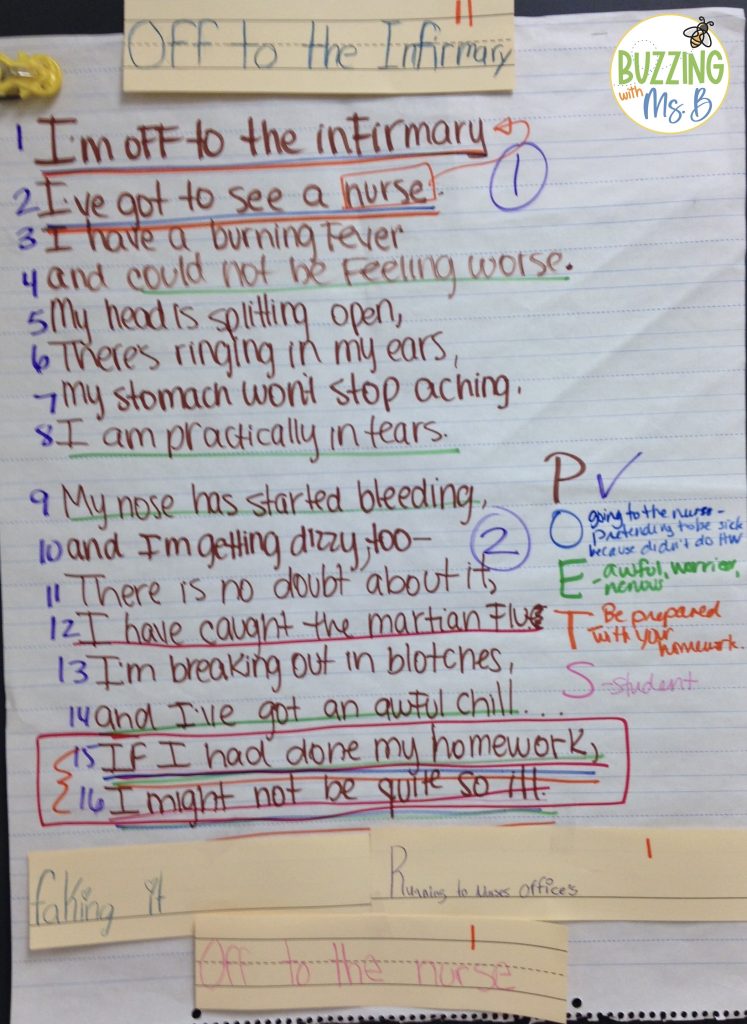 Off to the Infirmary
BUZZING
with
Ms. B
1 I'm off to the infirmary
2 I've got to see a nurse.
1
3 I have a burning fever
4 and could not be feeling worse.
5 My head is splitting open,
6 There's ringing in my ears,
7 My stomach won't stop aching.
8 I am practically in tears.
9 My nose has started bleeding,
10 and I'm getting dizzy, too-
2
11 There is no doubt about it,
12 I have caught the martian flu
13 I'm breaking out in blotches,
14 and I've got an awful chill...
15 If I had done my homework,
16 I might not be quite so ill.
P ✓
O going to the nurse-
pretending to be sick
because didn't do HW
E - awful, worrier,
nervous
T - Be prepared
with your
homework.
S - student
faking it
Running to Nurses Offices
Off to the nurse